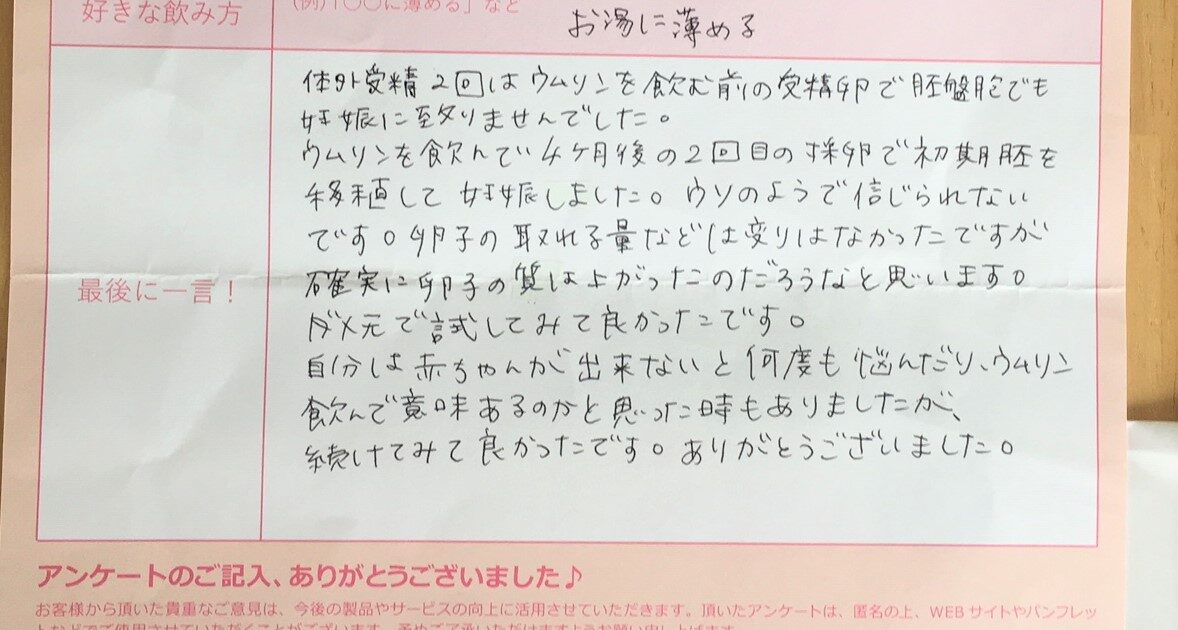 好きな飲み方
(例)「○○に薄める」など
お湯に薄める
体外受精2回はウムリンを飲む前の受精卵で胚盤胞でも
妊娠に至りませんでした。
ウムリンを飲んで4ケ月後の2回目の採卵で初期胚を
移植して妊娠しました。ウソのようで信じられない
です。卵子の取れる量などは変りはなかったですが
確実に卵子の質は上がったのだろうなと思います。
ダメ元で試してみて良かったです。
最後に一言!
自分は赤ちゃんが出来ないと何度も悩んだり、ウムリン
飲んで意味あるのかと思った時もありましたが、
続けてみて良かったです。ありがとうございました。
アンケートのご記入、ありがとうございました♪
お客様から頂いた貴重なご意見は、今後の製品やサービスの向上に活用させていただきます。頂いたアンケートは、匿名の上、WEBサイトやパンフレッ
トなどでご使用させていただくことがございます。予めご了承いただけますようお願い申し上げます。